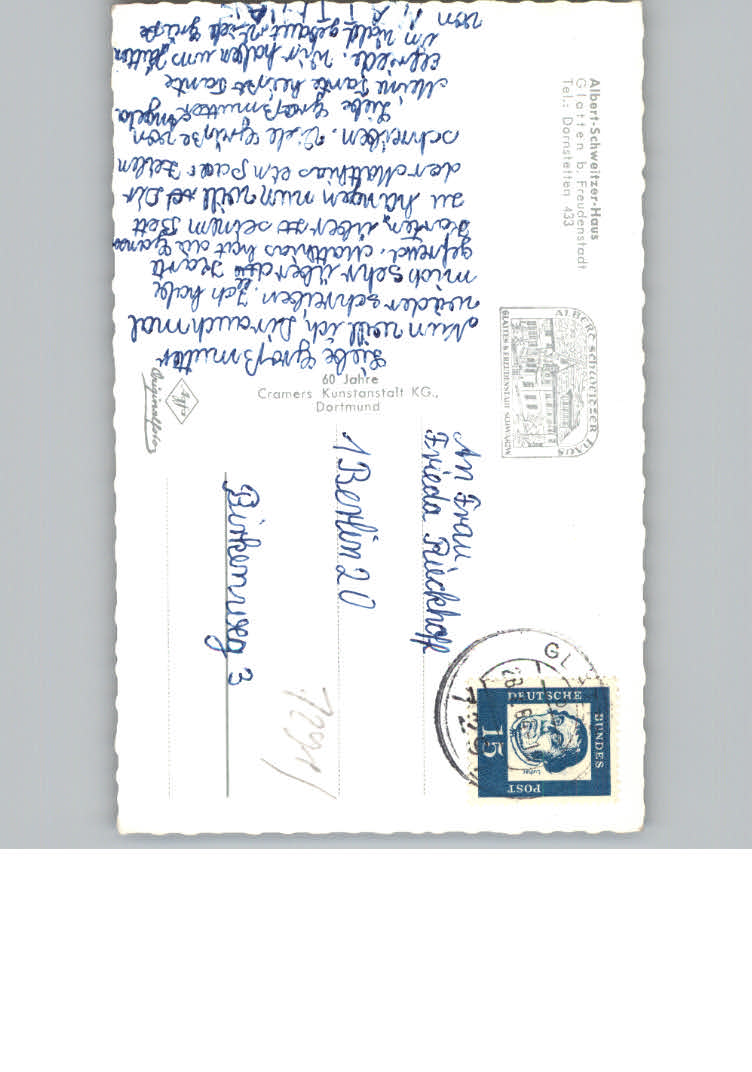 Albert-Schweitzer-Haus
Glatten b. Freudenstadt
Tel.: Dornstetten 433
ALBERT SCHWEITZER HAUS
GLATTEN b FREUDENSTADT SCHWARZW
Liebe Großmutter
Nun will ich Dir auch mal
wieder schreiben. Ich habe
mich sehr über die Karte
gefreut. Matthias hat die ganzen
Karten, über seinem Bett
zu hängen nun will Dir
der Matthias ein paar Zeilen
schreiben. Viele Grüße von
Angela
Liebe Großmutter
Meine Tante heißt Tante
Elfriede. Wir haben uns Hütten
im Wald gebaut. Viele Grüße
von
60 Jahre
Cramers Kunstanstalt KG.,
Dortmund
Agfa
Originalfoto
An Frau
Frieda Rieckhoff
1 Berlin 20
Birkenweg 3
DEUTSCHE
BUNDES
POST
15
Luther